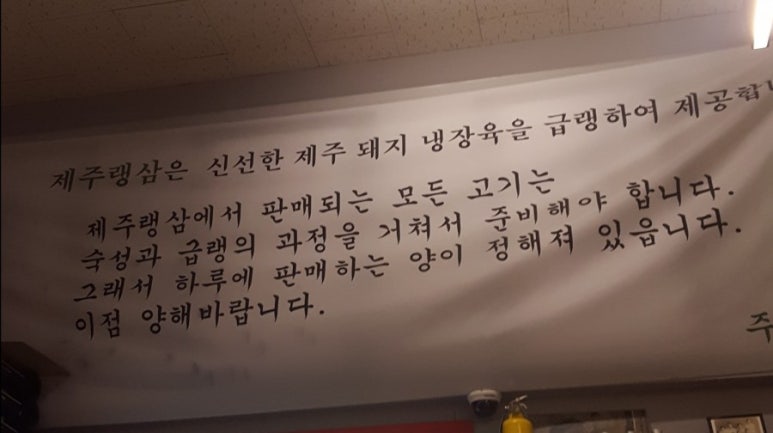 제주랭삼은 신선한 제주 돼지 냉장육을 급랭하여 제공합
제주랭삼에서 판매되는 모든 고기는
숙성과 급랭의 과정을 거쳐서 준비해야 합니다.
그래서 하루에 판매하는 양이 정해져 있읍니다.
이점 양해바랍니다.
주